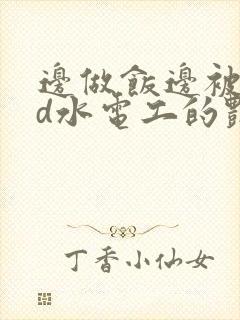 邊做飯邊被
d水電工的
丁香小仙女